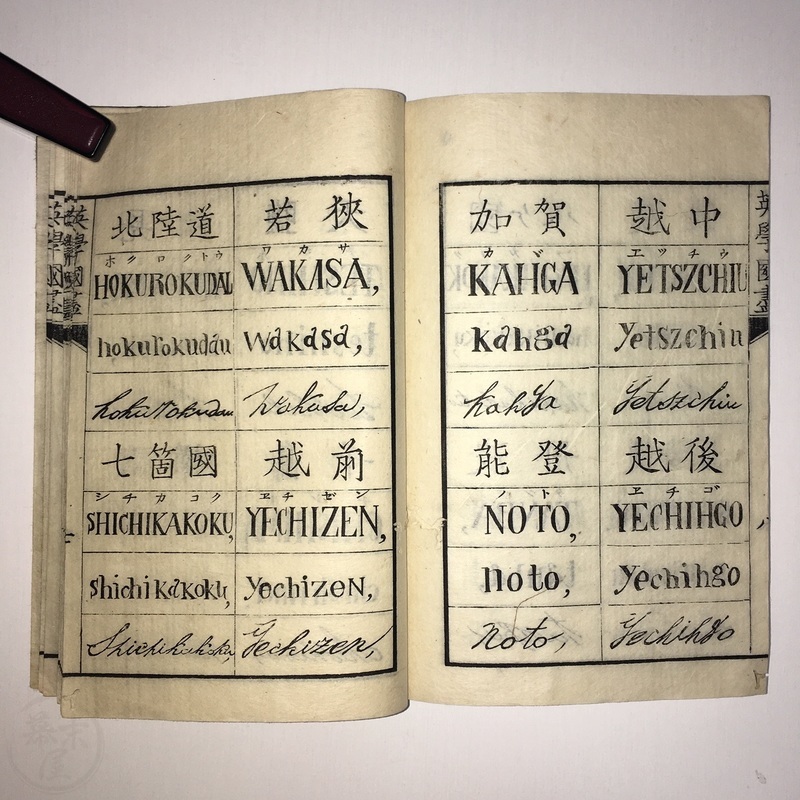 北陸道
ホクロクトウ
HOKUROKUDAU
hokurokudau
hokurokudau
七箇國
シチカコク
SHICHIKAKOKU,
shichikakoku,
Shichikakoku,
若狹
ワカサ
WAKASA,
wakasa,
Wakasa,
越前
ヱチゼン
YECHIZEN,
yechizeN,
Yechizen,
加賀
カヾ
KAHGA
kahga
kahga
能登
ノト
NOTO,
noto,
Noto,
越中
エツチウ
YETSZCHIU
yetszchiu
Yetszchiu
越後
ヱチゴ
YECHIHGO
yechihgo
Yechihgo
英學
國盡
英學國盡
八